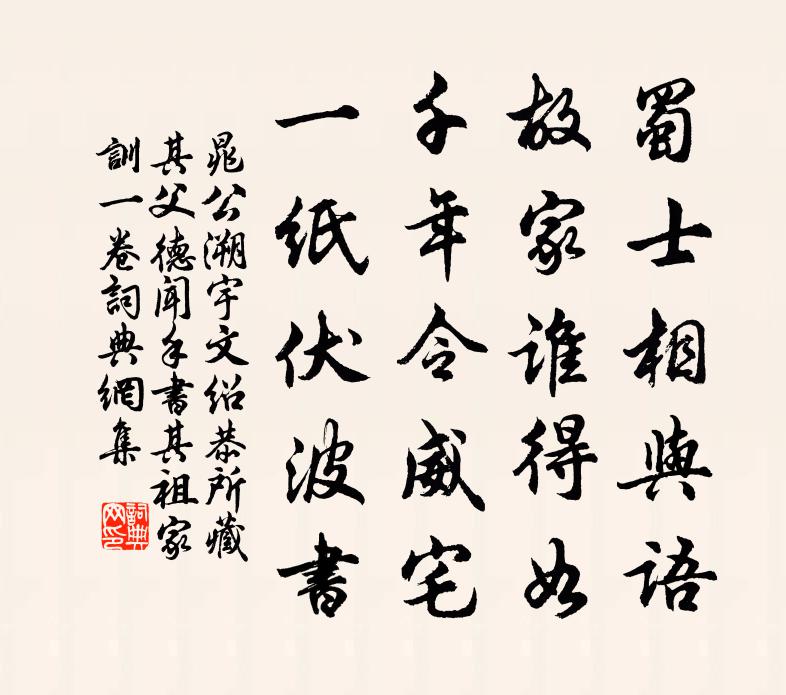 蜀士相與語
故家誰得如
千年令威宅
一紙伏波書
晁公溯宇文紹恭所藏
其父德聞手書其祖家
訓一卷詞典網集
詞典网印